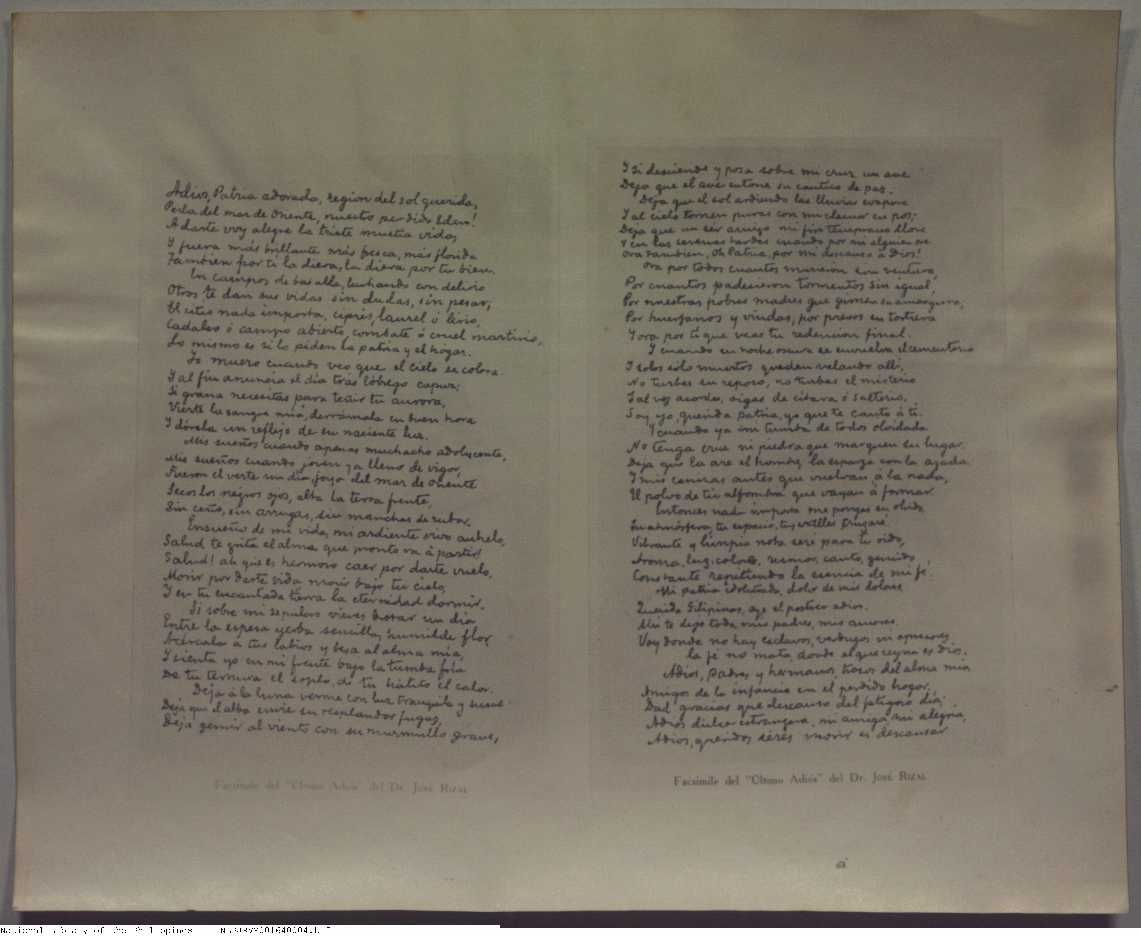 Adios, Patria adorada, region del sol querida,
Perla del mar de Oriente, nuestro perdido Eden!
A darte voy alegre la triste mustia vida,
Y fuera más brillante más fresca, más florida
Tambien por tí la diera, la diera por tu bien.
En campos de batalla, luchando con delirio
Otros te dan sus vidas sin dudas, sin pesar;
El sitio nada importa, ciprés, laurel ó lirio,
Cadalso ó campo abierto, combate ó cruel martirio,
Lo mismo es si lo piden la patria y el hogar.
Yo muero cuando veo que el cielo se colora
Y al fin anuncia el día trás lóbrego capuz;
Si grana necesitas para teñir tu aurora,
Vierte la sangre mía, derrámala en buen hora
Y dórela un reflejo de su naciente luz.
Mis sueños cuando apenas muchacho adolescente,
Mis sueños cuando joven ya lleno de vigor,
Fueron el verte un día, joya del mar de oriente
Secos los negros ojos, alta la tersa frente,
Sin ceño, sin arrugas, sin manchas de rubor.
Ensueño de mi vida, mi ardiente vivo anhelo,
Salud te grita el alma que pronto va á partir!
Salud! ah que es hermoso caer por darte vuelo,
Morir por darte vida, morir bajo tu cielo,
Y en tu encantada tierra la eternidad dormir.
Si sobre mi sepulcro vieres brotar un dia
Entre la espesa yerba sencilla, humilde flor,
Acércala a tus labios y besa al alma mía,
Y sienta yo en mi frente bajo la tumba fria
De tu ternura el soplo, de tu hálito el calor.
Deja á la luna verme con luz tranquila y suave
Deja que el alba envie su resplandor fugaz,
Deja gemir al viento con su murmullo grave,
Facsimile del "Ultimo Adiós" del Dr. José Rizal
Y si desciende y posa sobre mi cruz un ave
Deja que el ave entone su cantico de paz.
Deja que el sol ardiendo las lluvias evapore
Y al cielo tornen puras con mi clamor en pos;
Deja que un ser amigo mi fin temprano llore
Y en las serenas tardes cuando por mi alguien ore
Ora tambien, Oh Patria, por mi descanso á Dios!
Ora por todos cuantos murieron sin ventura,
Por cuantos padecieron tormentos sin igual,
Por nuestras pobres madres que gimen su amargura;
Por huerfanos y viudas, por presos en tortura
Y ora por tí que veas tu redencion final.
Y cuando en noche oscura se envuelva el cementerio
Y solos sólo muertos queden velando allí,
No turbes su reposo, no turbes el misterio
Tal vez acordes oigas de citara ó salterio,
Soy yo, querida Patria, yo que te canto á ti.
Y cuando ya mi tumba de todos olvidada
No tenga cruz ni piedra que marquen su lugar
Deja que la are el hombre, la esparza con la azada,
Y mis cenizas antes que vuelvan á la nada,
El polvo de tu alfombra que vayan á formar.
Entonces nada importa me pongas en olvido,
Tu atmósfera, tu espacio, tus valles cruzaré
Vibrante y limpia nota seré para tu oido,
Aroma, luz, colores, rumor, canto, gemido,
Constante repitiendo la esencia de mi fé.
Mi patria idolatrada, dolor de mis dolores,
Querida Filipinas, oye el postrer adios.
Ahi te dejo todo, mis padres, mis amores.
Voy donde no hay esclavos, verdugos ni opresores,
la fé no mata, donde el que reyna es Dios.
Adios, padres y hermanos, trozos del alma mía
Amigos de la infancia en el perdido hogar,
Dad gracias que descanso del fatigoso día;
Adios dulce estrangera, mi amiga mi alegria,
Adios, queridos séres morir es descansar
Facsimile del "Ultimo Adiós" del Dr. José Rizal
National Library of the Philippines